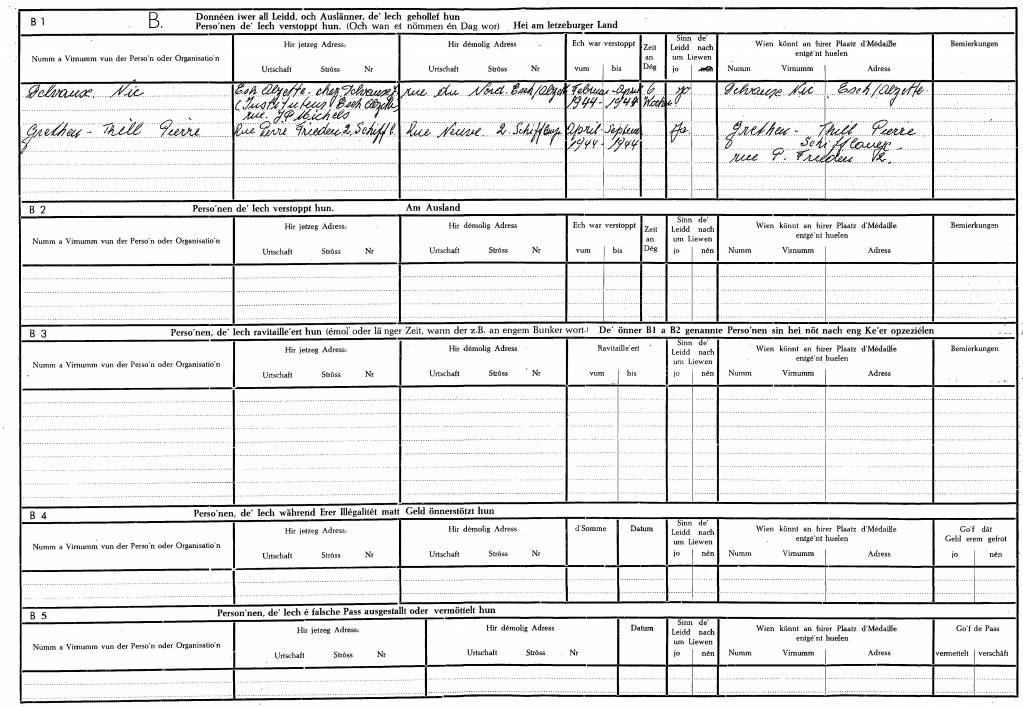 B 1 B. Donnéen iwer all Leidd, och Auslänner, de' Iech gehollef hun
Perso'nen de' Iech verstoppt hun. (Och wan et nömmen én Dag wor) Hei am letzeburger Land
Numm a Virnumm vun der Perso'n oder Organisatio'n
Hir jetzeg Adress:
Urtschaft Ströss Nr
Hir démolig Adress
Urtschaft Ströss Nr
Ech war verstoppt
vum bis
Zeit
an
Dég
Sinn de'
Leidd nach
um Liewen
jo
Wien könnt an hirer Plaatz d'Médaille
entgé'nt huelen
Numm Virnumm Adress
Bemierkungen
Delvaux. Nic
Esch Alzette, chez Delvaux J.
(Instituteur) Esch Alzette
rue. J.P. Michels
rue du Nord. Esch/Alzette
Februar-April
1944-1944
6
Wochen
jo
Delvaux Nic Esch/Alzette.
Grethen - Thill Pierre
Rue Pierre Frieden 2, Schiffl.
Rue Neuve 2. Schifflange
April - Septem
1944 - 1944
Ja.
Grethen - Thill Pierre
Schifflange
rue P. Frieden 2.
B 2 Perso'nen de' Iech verstoppt hun. Am Ausland
Numm a Virnumm vun der Perso'n oder Organisatio'n
Hir jetzeg Adress:
Urtschaft Ströss Nr
Hir démolig Adress
Urtschaft Ströss Nr
Ech war verstoppt
vum bis
Zeit
an
Dég
Sinn de'
Leidd nach
um Liewen
jo nén
Wien könnt an hirer Plaatz d'Médaille
entgé'nt huelen
Numm Virnumm Adress
Bemierkungen
B 3 Perso'nen, de' Iech ravitaille'ert hun (émol' oder länger Zeit, wann der z.B. an engem Bunker wort.) De' önner B1 a B2 genannte Perso'nen sin hei nöt nach eng Ke'er opzeziélen
Numm a Virnumm vun der Perso'n oder Organisatio'n
Hir jetzeg Adress:
Urtschaft Ströss Nr
Hir démolig Adress
Urtschaft Ströss Nr
Ravitaille'ert
vum bis
Sinn de'
Leidd nach
um Liewen
jo nén
Wien könnt an hirer Plaatz d'Médaille
entgé'nt huelen
Numm Virnumm Adress
Bemierkungen
B 4 Perso'nen, de' Iech während Erer Illégalitét matt Geld önnerstötzt hun
Numm a Virnumm vun der Perso'n oder Organisatio'n
Hir jetzeg Adress:
Urtschaft Ströss Nr
Hir démolig Adress
Urtschaft Ströss Nr
d'Somme
Datum
Sinn de'
Leidd nach
um Liewen
jo nén
Wien könnt an hirer Plaatz d'Médaille
entgé'nt huelen
Numm Virnumm Adress
Go'f dât
Geld erem gefrot
jo nén
B 5 Person'nen, de' Iech é falsche Pass ausgestallt oder vermöttelt hun
Numm a Virnumm vun der Perso'n oder Organisatio'n
Hir jetzeg Adress:
Urtschaft Ströss Nr
Hir démolig Adress
Urtschaft Ströss Nr
Datum
Sinn de'
Leidd nach
um Liewen
jo nén
Wien könnt an hirer Plaatz d'Médaille
entgé'nt huelen
Numm Virnumm Adress
Go'f de Pass
vermettelt verschâft